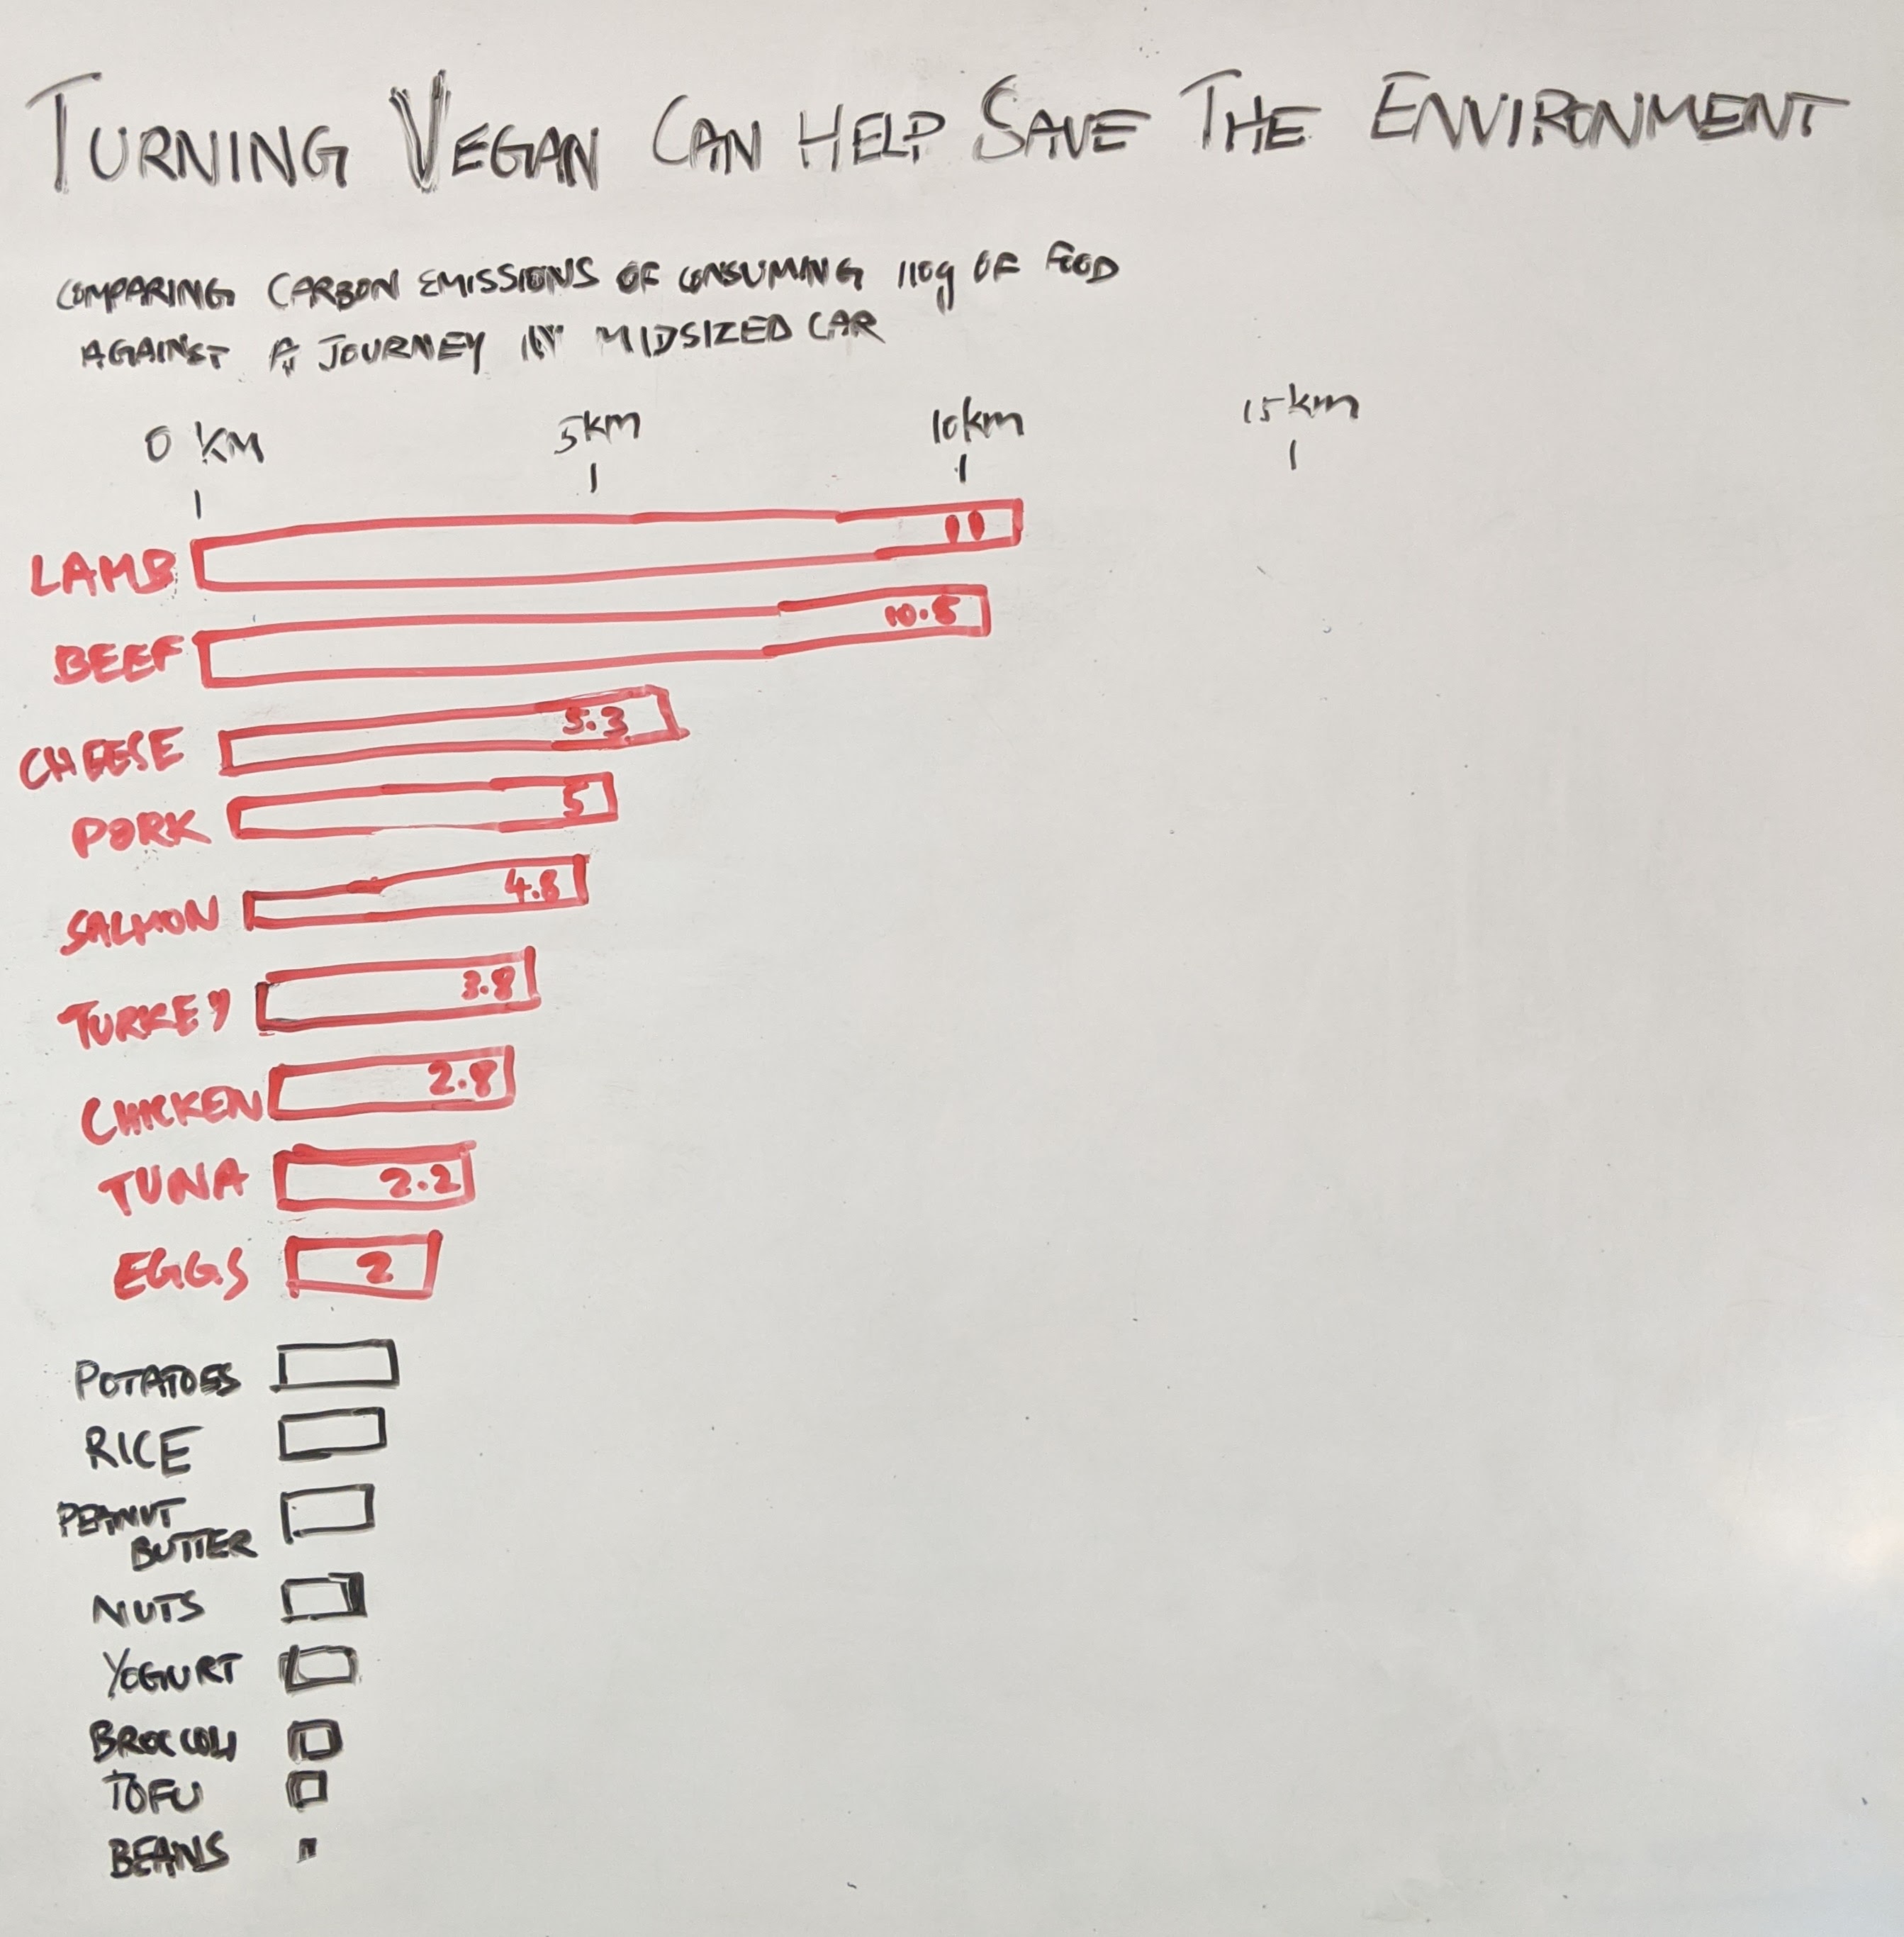 TURNING VEGAN CAN HELP SAVE THE ENVIRONMENT
COMPARING CARBON EMISSIONS OF CONSUMING 110g OF FOOD
AGAINST A JOURNEY IN MIDSIZED CAR
0 KM 5km 10km 15km
LAMB 11
BEEF 10.5
CHEESE 5.3
PORK 5
SALMON 4.8
TURKEY 3.8
CHICKEN 2.8
TUNA 2.2
EGGS 2
POTATOES
RICE
PEANUT
BUTTER
NUTS
YOGURT
BROCCOLI
TOFU
BEANS